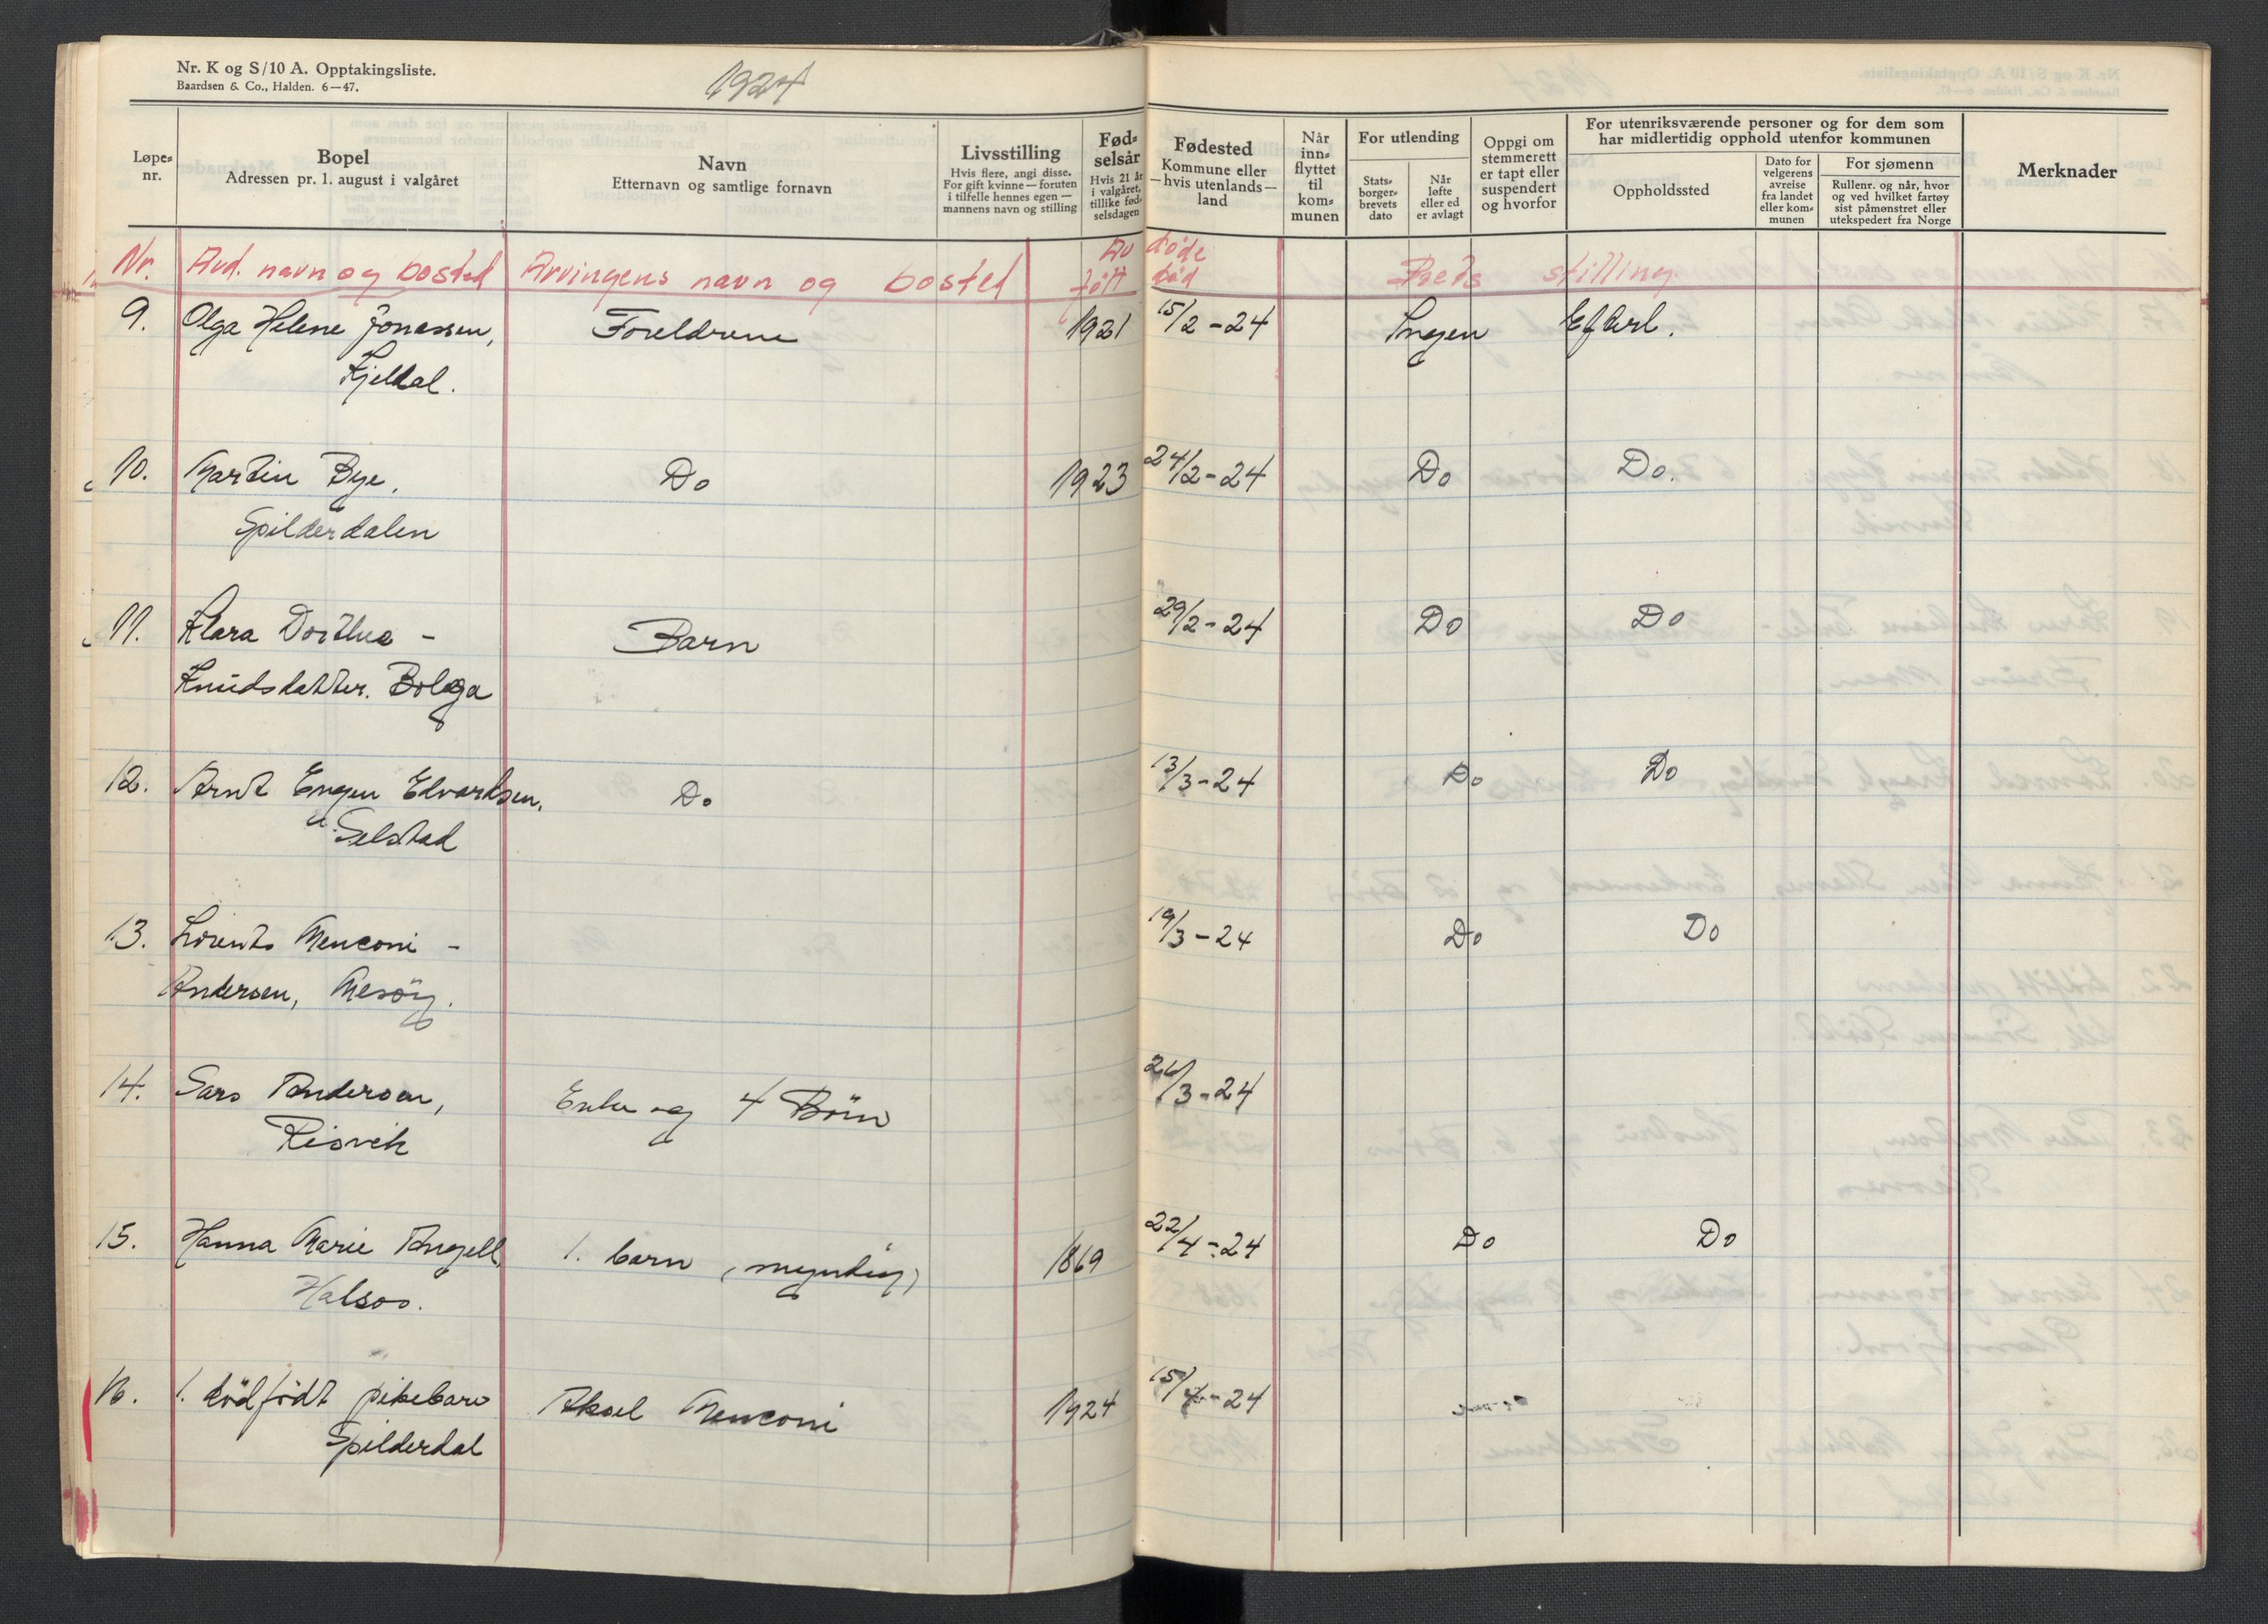 Nr. K og S/10 A. Opptakingsliste.
Baardsen & Co., Halden. 6—47.
1924
Løpe-
nr.
Bopel
Adressen pr. 1. august i valgåret
Navn
Etternavn og samtlige fornavn
Livsstilling
Hvis flere, angi disse.
For gift kvinne — foruten
i tilfelle hennes egen —
mannens navn og stilling
Fød-
selsår
Hvis 21 år
i valgåret,
tillike fød-
selsdagen
Fødested
Kommune eller
— hvis utenlands —
land
Når
inn-
flyttet
til
kom-
munen
For utlending
Stats-
borger-
brevets
dato
Når
løfte
eller ed
er avlagt
Oppgi om
stemmerett
er tapt eller
suspendert
og hvorfor
For utenriksværende personer og for dem som
har midlertidig opphold utenfor kommunen
Oppholdssted
Dato for
velgerens
avreise
fra landet
eller kom-
munen
For sjømenn
Rullenr. og når, hvor
og ved hvilket fartøy
sist påmønstret eller
utekspedert fra Norge
Merknader
Nr. Avd. navn og bosted Arvingens navn og bosted Av døde
født død stilling.
9. Olga Helene Jonassen, Foreldrene 1921 15/2-24 Ingen Efterl.
Kjeldal.
10. Martin Bye, Do 1923 24/2-24 Do Do.
Spilderdalen
11. Klara Dorthea - Barn 29/2-24 Do Do
Knudsdatter. Bolga
12. Arnt Engen Edvardsen, Do 13/3-24 Do Do
Selstad
13. Lorents Menconi - 19/3-24 Do Do
Andersen, Mesøy.
14. Lars Andersen, Enke og 4 Börn 26/3-24
Risvik
15. Hanna Marie Angell, 1. barn (myndig) 1869 22/4-24 Do Do
Halsos.
16. 1. dödfödt pikebarn Aksel Menconi 1924 15/4-24
Spilderdal